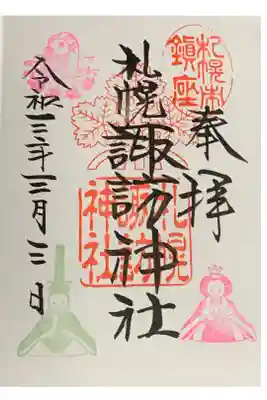 奉拝
札幌市鎮座
札幌諏訪神社
札幌諏訪神社
令和三年三月三日